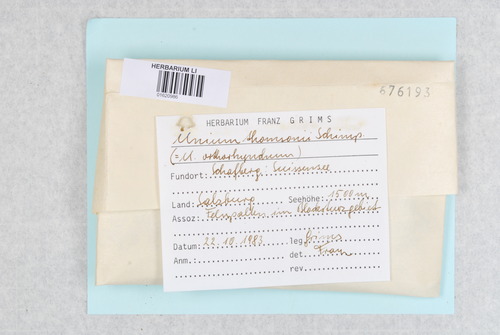 HERBARIUM LI
676193
HERBARIUM FRANZ GRIMS
Mnium thomsonii Schimp.
(= M. orthorhynchum)
Fundort: Schafberg, Suissensee
Land: Salzburg Seehöhe: 1500 m
Assoz: Felsspalten im Blocksturzgebiet
Datum: 22.10.1983 leg. Grims
Anm. det. Franz
rev.